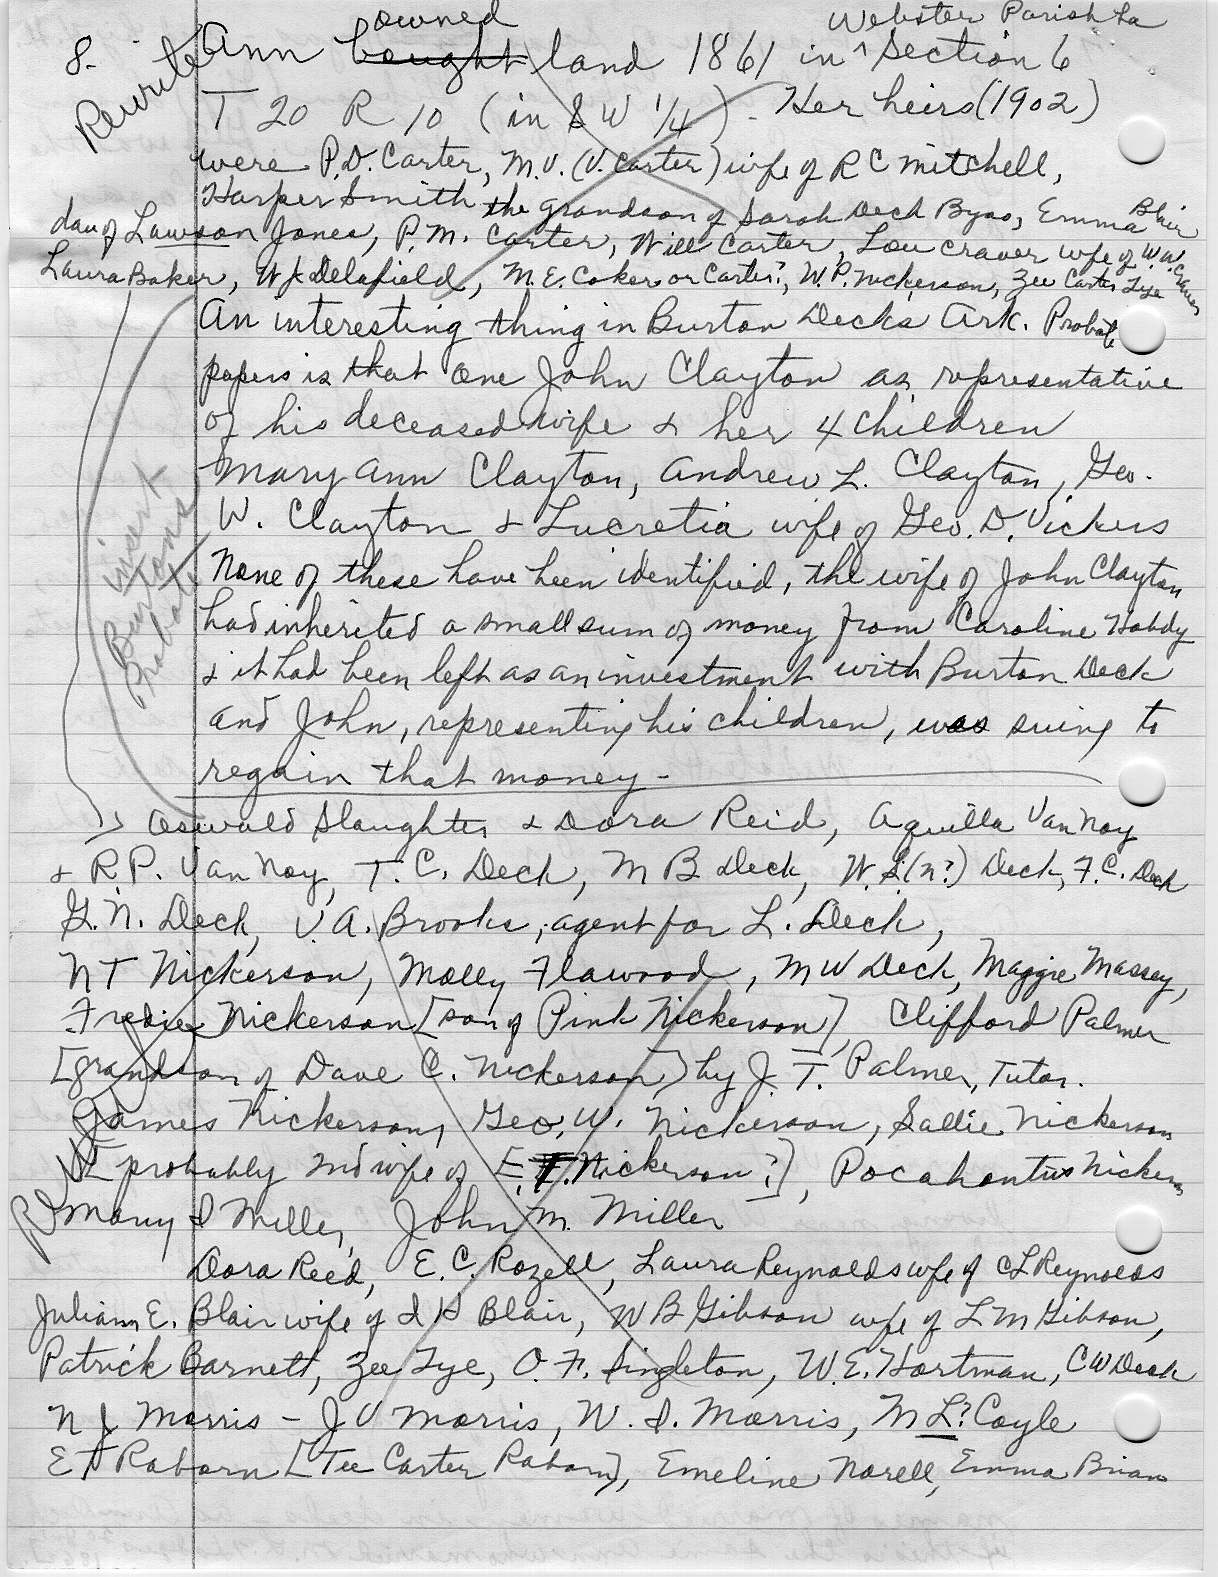 owned Webster Parish La
8. Ann bought land 1861 in ^ Section 6
Rewrite
T 20 R 10 (in SW 1/4) - Her heirs (1902)
were P.D. Carter, M.V. (V. Carter) wife of R C Mitchell,
Harper Smith the grandson of Sarah Deck Byas, Emma Blair
dau of Lawson Jones, P.M. Carter, Will Carter, Lou Craver wife of W.W. Craver
Laura Baker, W J Delafield, M.E. Coker or Carter?, W.P. Nickerson, Zee Carter Tye
An interesting thing in Burton Decks Ark. Probate
papers is that one John Clayton as representative
of his deceased wife & her 4 children
Mary Ann Clayton, Andrew L. Clayton, Geo.
W. Clayton & Lucretia wife of Geo. D. Vickers
None of these have been identified, the wife of John Clayton
had inherited a small sum of money from Caroline Hobdy
& it had been left as an investment with Burton Deck
and John, representing his children, was suing to
regain that money -
insert
Burtons
Probate
Oswald Slaughter & Dora Reid, Aquilla Van Noy
& R.P. Van Noy, T.C. Deck, M B Deck, W.S. (n?) Deck, F.C. Deck
G.N. Deck, V.A. Brooks, agent for L. Deck,
N T Nickerson, Molly Flawood, M W Deck, Maggie Massey,
Fredie Nickerson [son of Pink Nickerson], Clifford Palmer
[grandson of Dave C. Nickerson] by J.T. Palmer, Tutor.
James Nickerson, Geo. W. Nickerson, Sallie Nickerson
[probably 2nd wife of E.F. Nickerson?], Pocahontus Nickerson
Rewrite
Mary I Miller, John M. Miller
Dora Reed, E.C. Rozell, Laura Reynolds wife of C L Reynolds
Juliann E. Blair wife of I H Blair, W B Gibson wife of L M Gibson,
Patrick Barnett, Zee Tye, O.F. Singleton, W.E. Hortman, C W Deck
N J Morris - J V Morris, W.I. Morris, M L? Coyle
E T Raborn [Tee Carter Raborn], Emeline Norell, Emma Brian